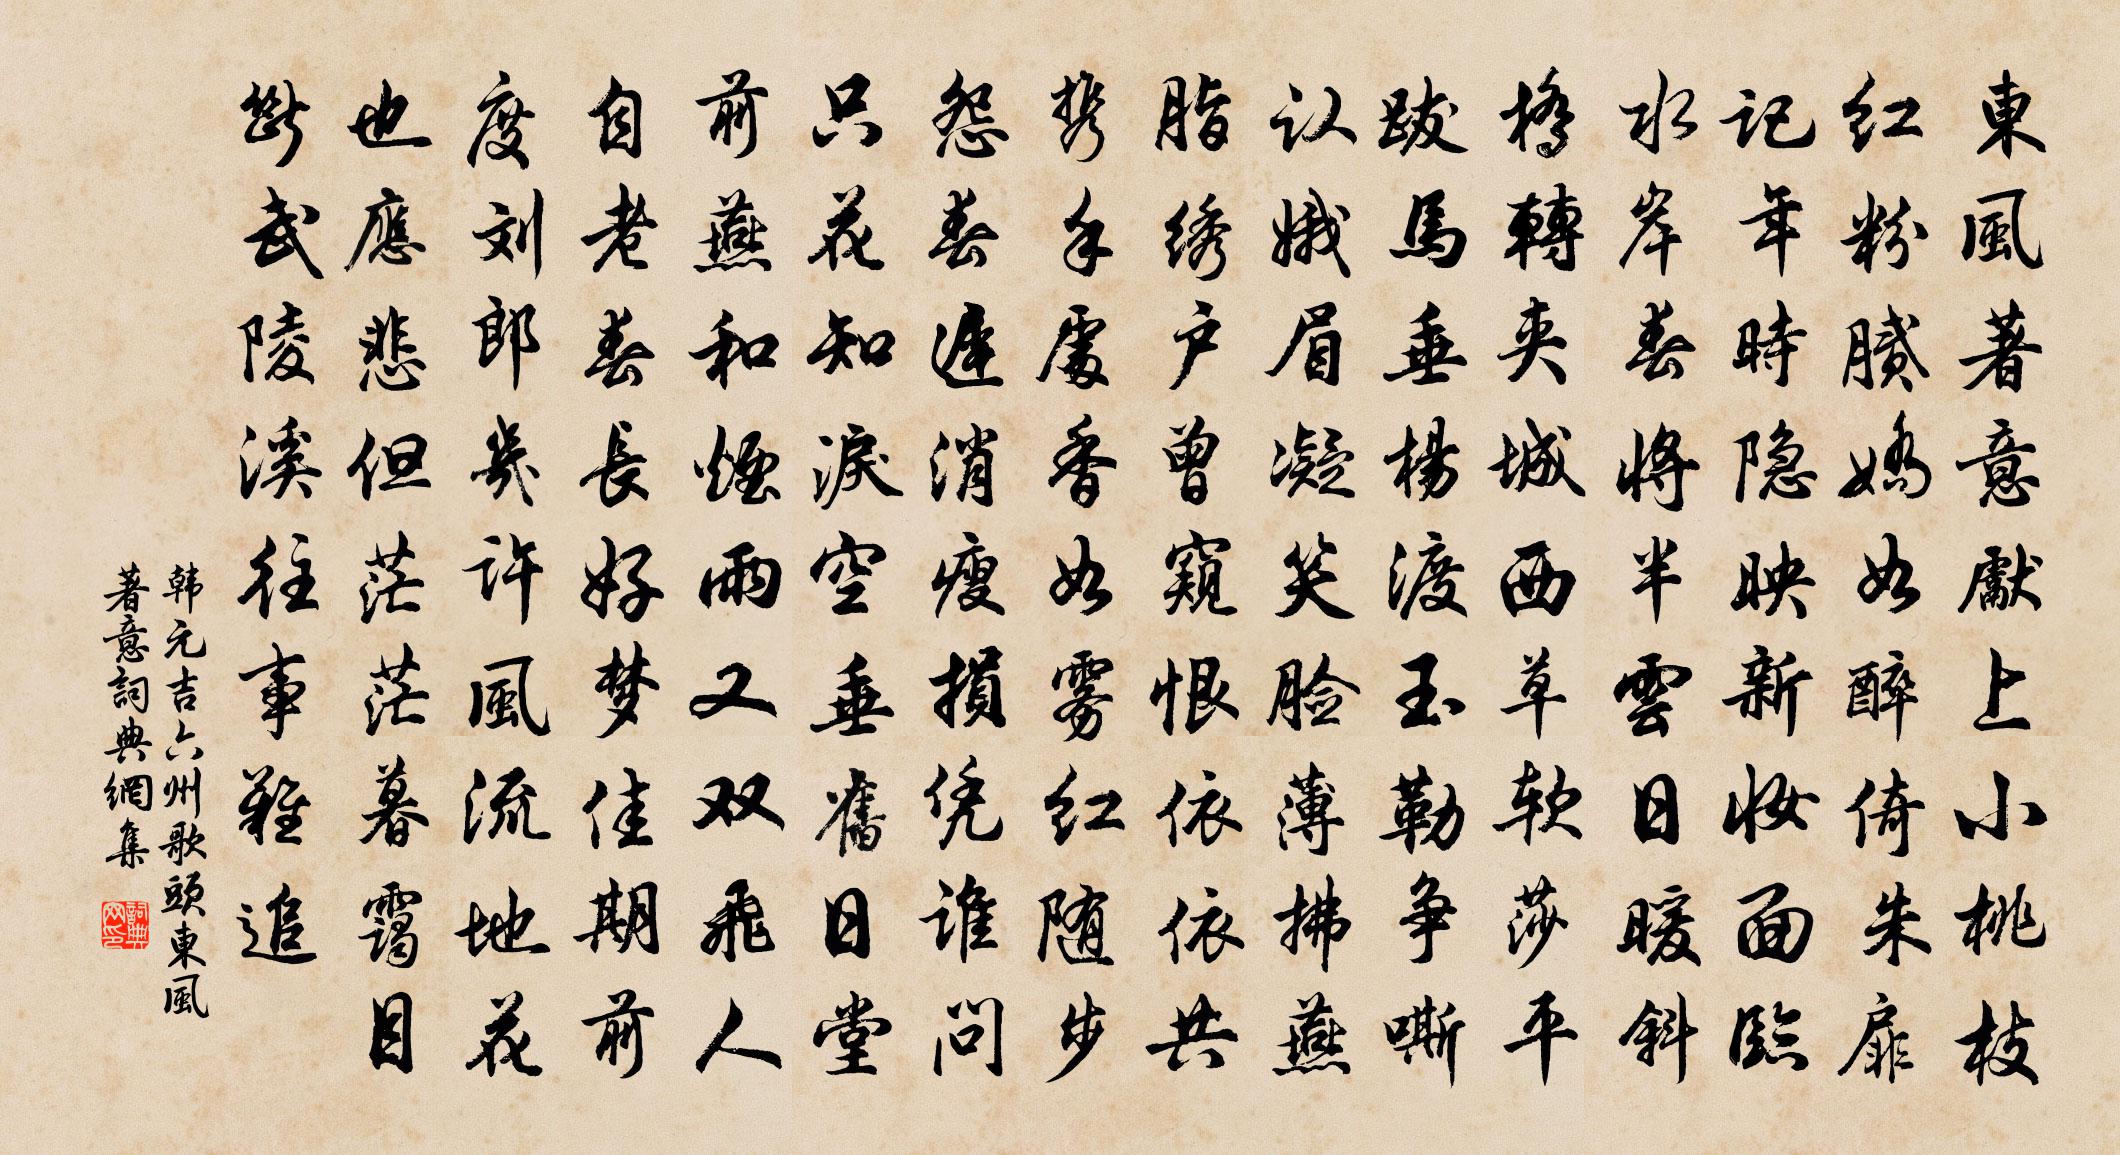 東風著意獻上小桃枝
红粉腻嬌如醉倚朱扉
记年時隐映新妆面臨
水岸春將半雲日暖斜
橋轉夾城西草软莎平
跋馬垂楊渡玉勒争嘶
认娥眉凝笑脸薄拂燕
脂绣户曾窥恨依依共
携手處香如雾红随步
怨春遲消瘦損凭谁问
只花知淚空垂舊日堂
前燕和煙雨又双飛人
自老春長好梦佳期前
度刘郎幾许風流地花
也應悲但茫茫暮靄目
斷武陵溪往事難追
韩元吉六州歌頭東風
著意詞典網集
詞典
网印